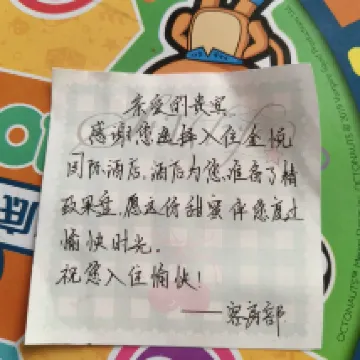 亲爱的贵宾
感谢您选择入住金悦
国际酒店,酒店为您准备了精
致果盘,愿这份甜蜜伴您度过
愉快时光。
祝您入住愉快!
——客房部
底